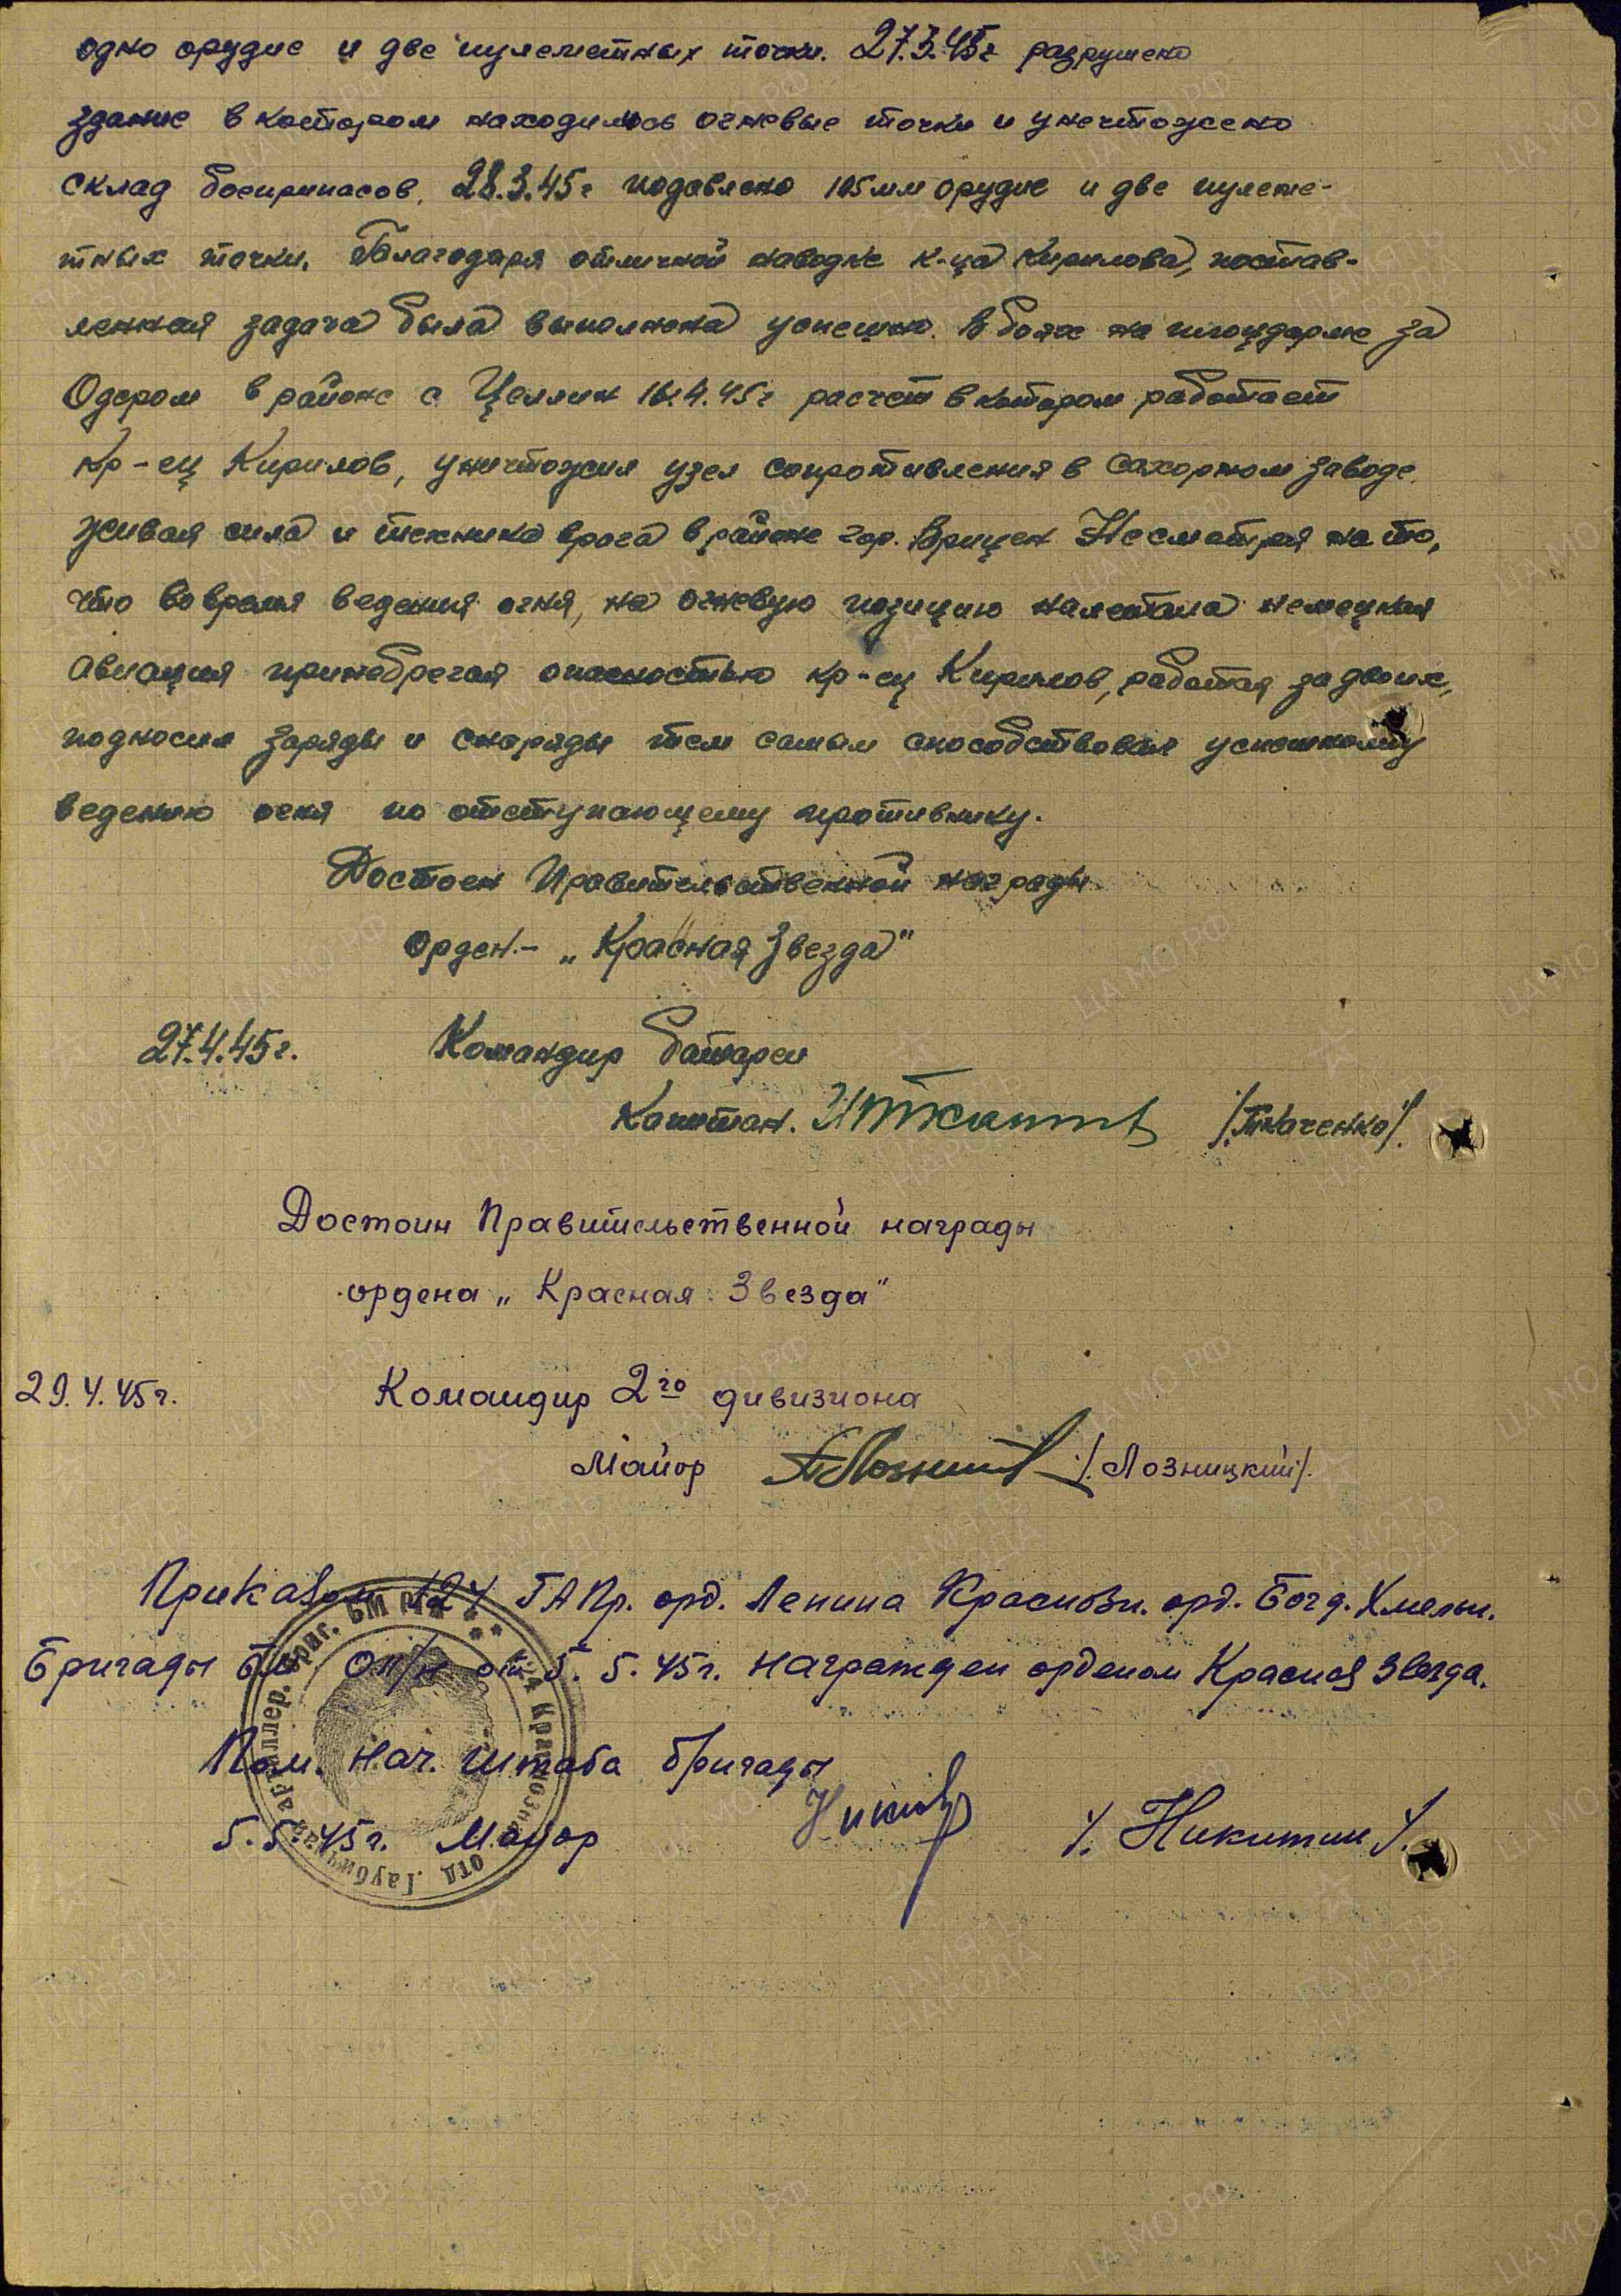 одно орудие и две пулеметных точки. 27.3.45г разрушено
здание в котором находилось огневые точки и унечтожено
склад боеприпасов, 28.3.45г подавлено 105мм орудие и две пулеме-
тных точки. Благодаря отличной наводке к-ца Кирилова, постав-
ленная задача была выполнена успешно. В боях на плоцдарме за
Одером в районе с Целлин 16.4.45г расчет в котором работает
кр-ец Кирилов, унечтожил узел сопротивления в сахорном заводе.
живая сила и техника врага в районе гор. Врицен Несмотря на то,
что во время ведения огня, на огневую позицию налетала немецкая
авиация принебрегая опасностью кр-ец Кирилов, работая за двоих,
подносил заряды и снаряды тем самым способствовал успешному
ведению огня по отступающему противнику.
Достоен Правительственной награды
Орден.- „Красная Звезда"
27.4.45г. Командир батареи
Капитан. /.Ткаченко/.
Достоин Правительственной награды
ордена „Красная Звезда"
29.4.45г. Командир 2го дивизиона
Майор /.Лозницкий/.
Приказом 124 ГАПр. орд. Ленина Краснозн. орд. Богд. Хмельн.
Бригады БМ оп/н от 5.5.45г. награжден орденом Красная Звезда.
Пом. нач. штаба бригады
5.5.45г. Майор /. Никитин /.
отд. Гаубичная артиллер. бриг. БМ РГК
124 Краснозн.
ПАМЯТЬ НАРОДА
ЦА МО РФ